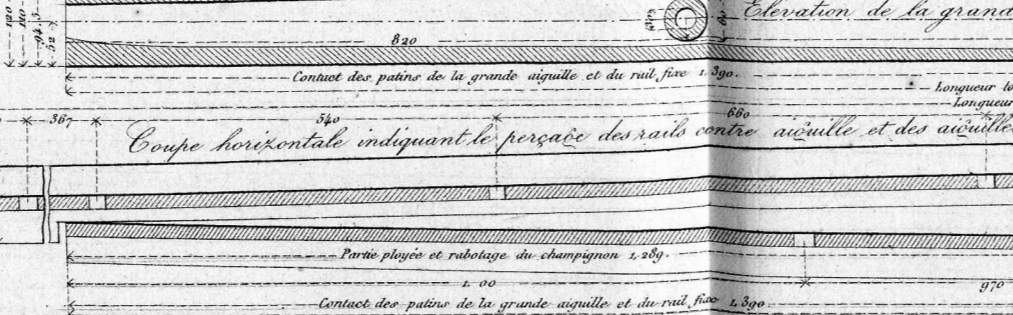 Elévation de la grand
820
120
110
94.3
52
60
Contact des patins de la grande aiguille et du rail fixe 1,390.
Longueur to
Longueur
367
540
660
Coupe horizontale indiquant le perçage des rails contre aiguille et des aiguilles
Partie ployée et rabotage du champignon 1,289.
1.00
970
Contact des patins de la grande aiguille et du rail fixe 1,390.